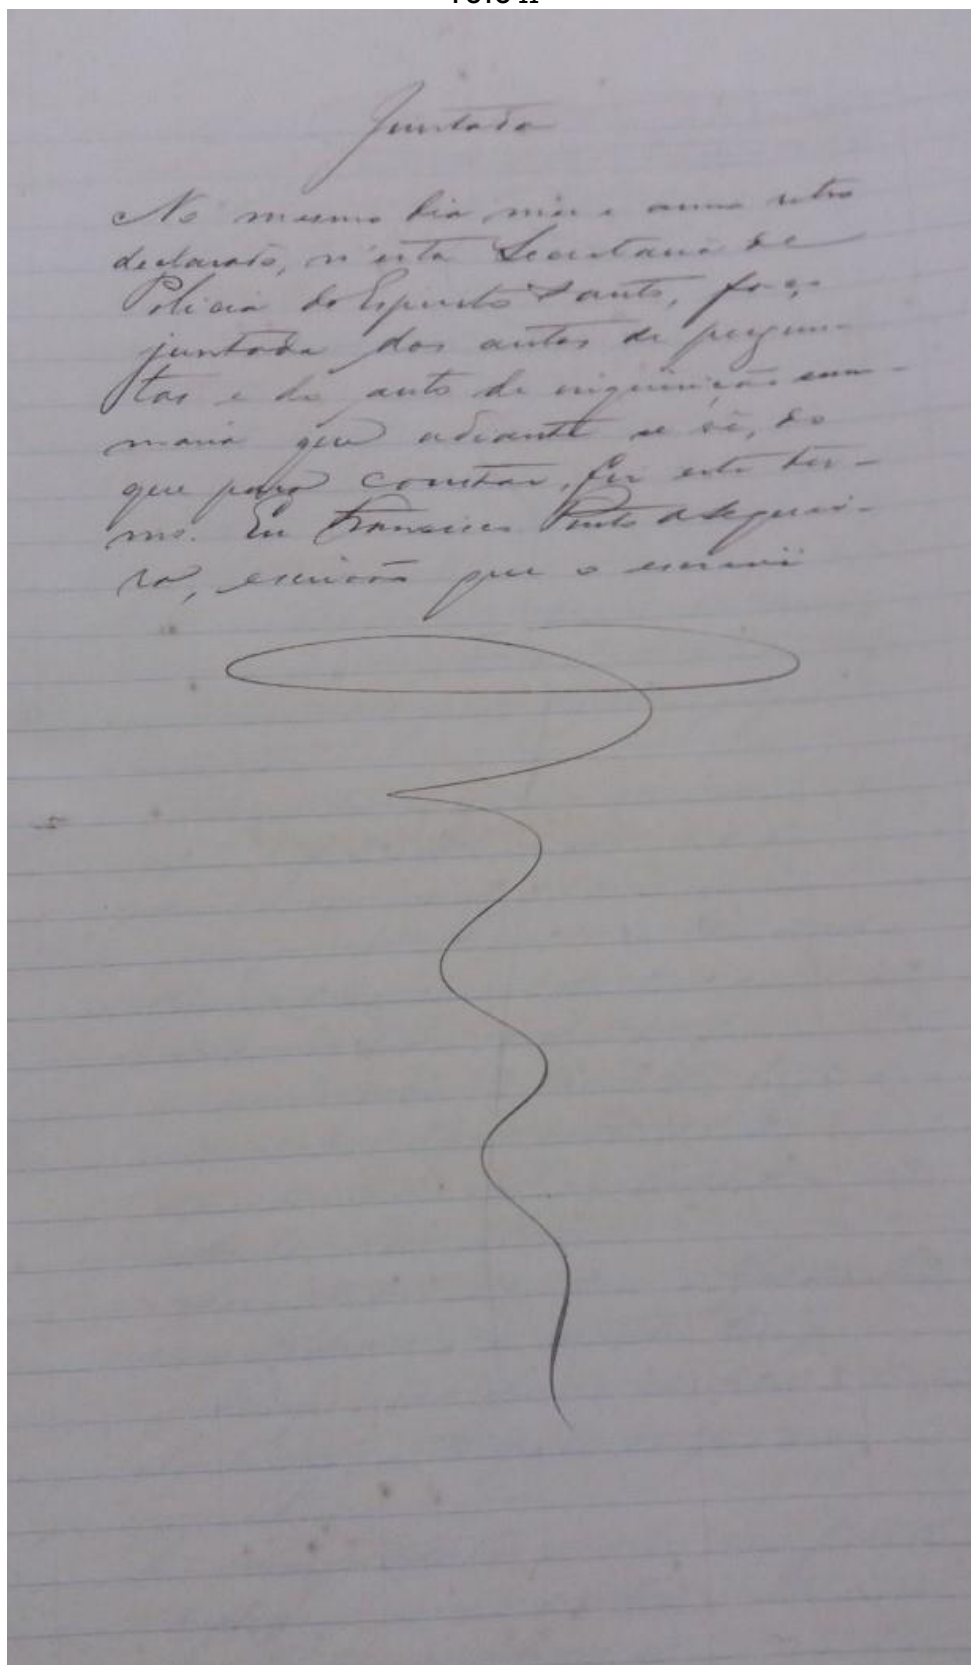 Juntada
No mesmo dia mez e anno retro
declarado, n'esta Secretaria de
Policia do Espirito Santo, faço
juntada dos autos de pergun-
tas e do auto de inquirição sum-
maria que adiante se vê, do
que para constar, fiz este ter-
mo. Eu Francisco Pinto
escrivão que o escrevi